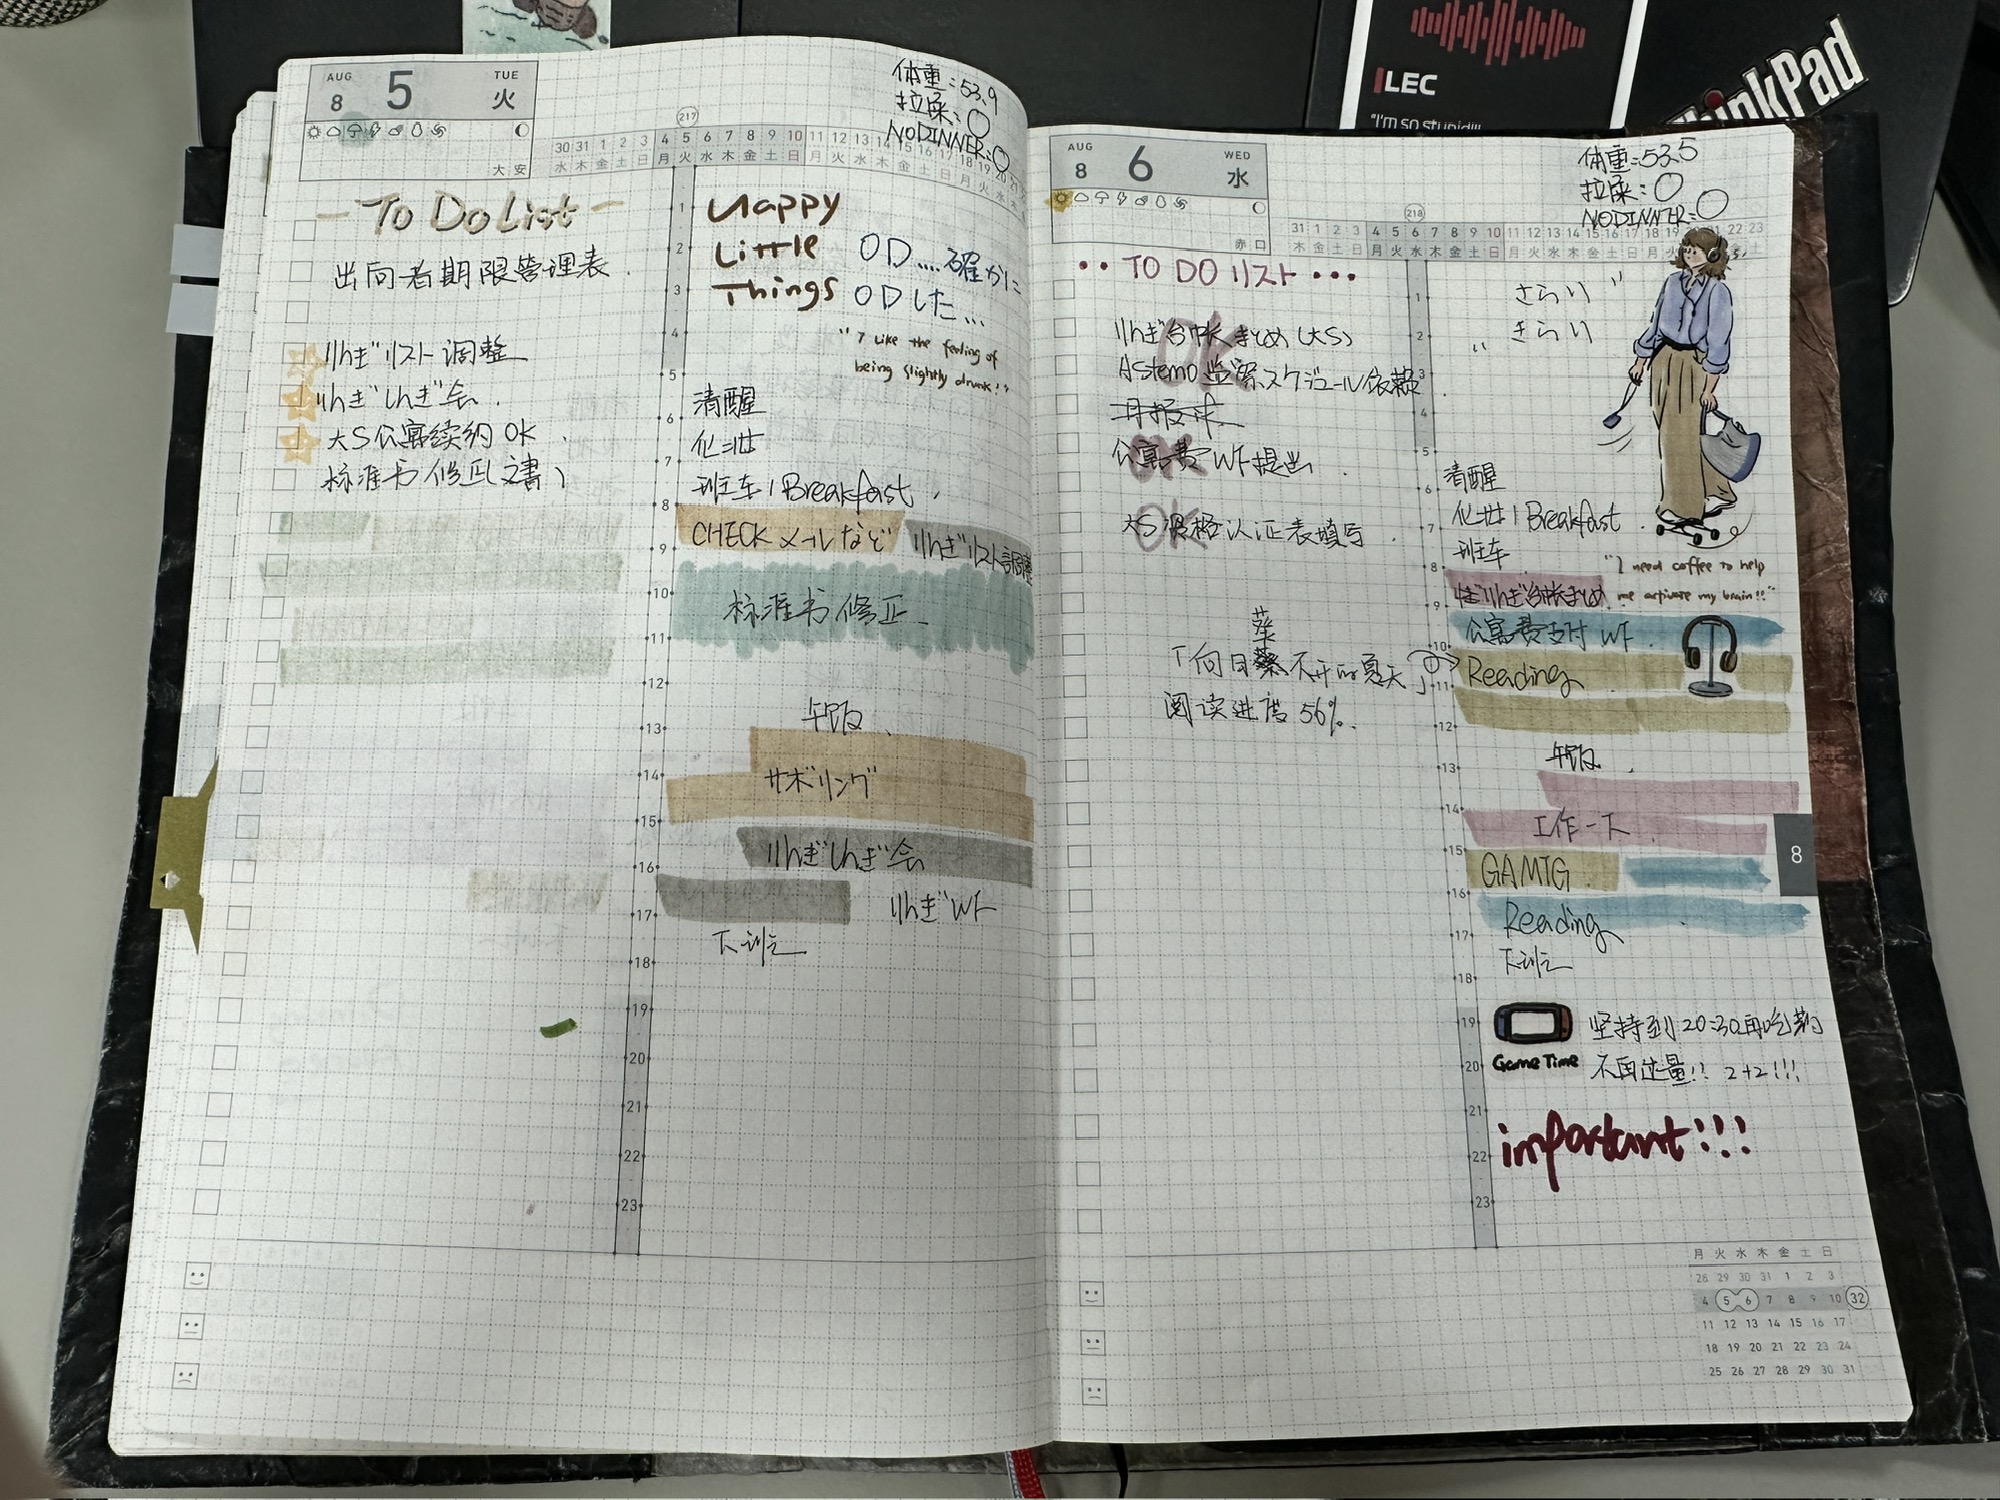 LEC
"I'm so stupid!!!
ThinkPad
AUG TUE
8 5 火
大安
体重:53.9
拉屎:○
NODINNER:○
217
30 31 1 2 3 4 5 6 7 8 9 10 11 12 13 14 15 16 17 18 19 20 21
水 木 金 土 日 月 火 水 木 金 土 日 月 火 水 木 金 土 日 月 火 水 木
- To Do List -
出向者期限管理表
りんぎリスト调整
りんぎしんぎ会
大S公寓续约 OK
标准书修正(文書)
Happy
Little
Things
OD....確かに
ODした...
"I like the feeling of
being slightly drunk!"
1
2
3
4
5
6
7
8
9
10
11
12
13
14
15
16
17
18
19
20
21
22
23
清醒
化妆
班车 / Breakfast
CHECK メールなど
りんぎリスト調整
标准书修正
午饭
サボリング
りんぎしんぎ会
りんぎWF
下班
AUG WED
8 6 水
赤口
体重:53.5
拉屎:○
NODINNER:○
218
31 1 2 3 4 5 6 7 8 9 10 11 12 13 14 15 16 17 18 19 20 21 22 23
木 金 土 日 月 火 水 木 金 土 日 月 火 水 木 金 土
•• TO DO リスト •••
りんぎ台帐まとめ(大S)
Astemo 监察スケジュール依頼
公寓费WF提出
OK
大S资格认证表填写
OK
葵
「向日葵不开的夏天」
阅读进度 56%.
"きらり
きらり"
1
2
3
4
5
6
7
8
9
10
11
12
13
14
15
16
17
18
19
20
21
22
23
清醒
化妆 / Breakfast
班车
"I need coffee to help
me activate my brain!!"
りんぎ台帐まとめ
公寓费支付 WF
Reading
午饭
工作一下
GAMIG
Reading
下班
Game Time
坚持到20:30再吃药
不再过量!! 2+2!!!
important!!!
8
月 火 水 木 金 土 日
28 29 30 31 1 2 3
4 5 6 7 8 9 10 32
11 12 13 14 15 16 17
18 19 20 21 22 23 24
25 26 27 28 29 30 31